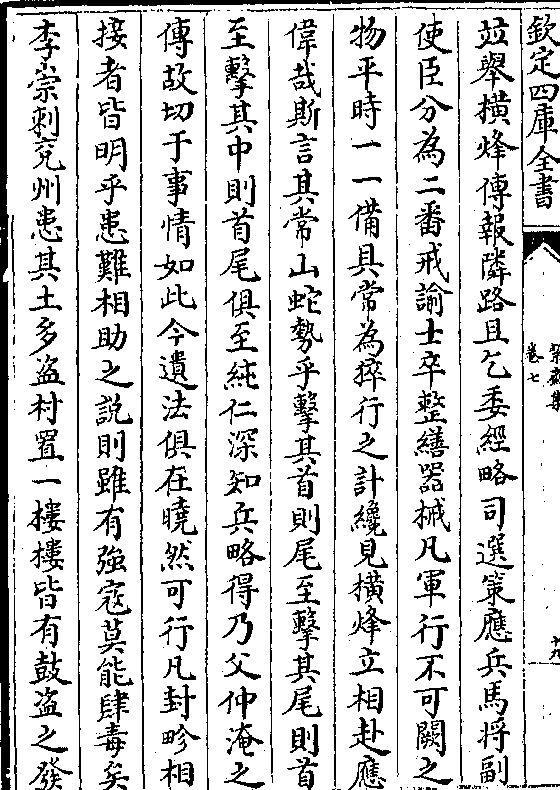 欽定四庫全書
卷七
並舉横烽傳報隣路且乞委經略司選策應兵馬將副
使臣分為二番戒諭士卒整繕器械凡軍行不可闕之
物平時一一備具常為猝行之計纔見横烽立相赴應
偉哉斯言其常山蛇勢乎擊其首則尾至擊其尾則首
至擊其中則首尾俱至純仁深知兵略得乃父仲淹之
傳故切于事情如此今遺法俱在曉然可行凡封畛相
接者皆明乎患難相助之說則雖有強寇莫能肆毒矣
李崇刺兖州患其土多盗村置一樓樓皆有鼓盗之發